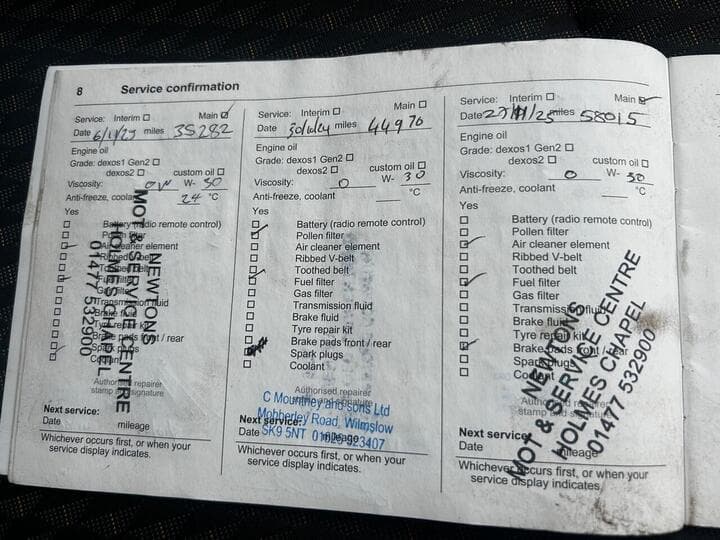 8 Service confirmation
Service: Interim ☐ Main ☑
Date 6/11/23 miles 35282
Engine oil
Grade: dexos1 Gen2 ☐
dexos2 ☐ custom oil ☐
Viscosity: 0W W- 30
Anti-freeze, coolant 24 °C
Yes
Battery (radio remote control)
Pollen filter
Air cleaner element
Ribbed V-belt
Toothed belt
Fuel filter
Gas filter
Transmission fluid
Brake fluid
Tyre repair kit
Brake pads front / rear
Spark plugs
Coolant
Authorised repairer
stamp and signature
NEWTONS
MOT & SERVICE CENTRE
HOLMES CHAPEL
01477 532900
Next service:
Date mileage
Whichever occurs first, or when your
service display indicates.
Service: Interim ☐ Main ☐
Date miles 44970
Engine oil
Grade: dexos1 Gen2 ☐
dexos2 ☐ custom oil ☐
Viscosity: 0 W- 30
Anti-freeze, coolant °C
Yes
Battery (radio remote control)
Pollen filter
Air cleaner element
Ribbed V-belt
Toothed belt
Fuel filter
Gas filter
Transmission fluid
Brake fluid
Tyre repair kit
Brake pads front / rear
Spark plugs
Coolant
Authorised repairer
stamp and signature
C Mountney and sons Ltd
Mobberley Road, Wilmslow
SK9 5NT 01625 523407
Next service:
Date mileage
Whichever occurs first, or when your
service display indicates.
Service: Interim ☐ Main ☑
Date miles 58015
Engine oil
Grade: dexos1 Gen2 ☐
dexos2 ☐ custom oil ☐
Viscosity: 0 W- 30
Anti-freeze, coolant °C
Yes
Battery (radio remote control)
Pollen filter
Air cleaner element
Ribbed V-belt
Toothed belt
Fuel filter
Gas filter
Transmission fluid
Brake fluid
Tyre repair kit
Brake pads front / rear
Spark plugs
Coolant
Authorised repairer
stamp and signature
NEWTONS
MOT & SERVICE CENTRE
HOLMES CHAPEL
01477 532900
Next service:
Date mileage
Whichever occurs first, or when your
service display indicates.